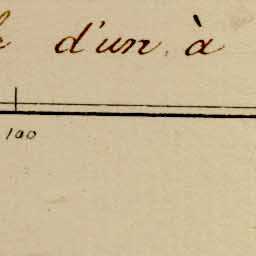 d'un à
100